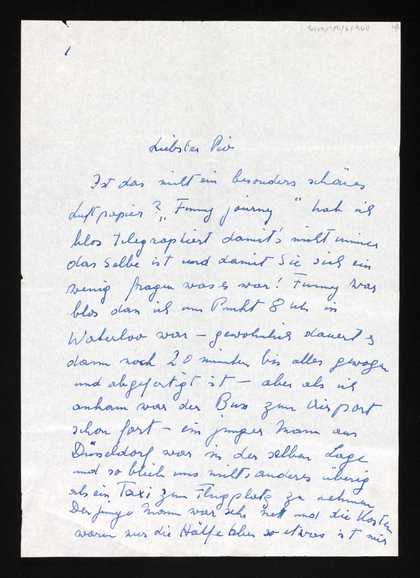 1
Liebster Piv
Ist das nicht ein besonders schönes
Luftpapier? „Funny journey" hab ich
blos telegraphiert damit's nicht immer
das selbe ist und damit Sie sich ein
wenig fragen was es war! Funny war
blos das ich um Punkt 8 Uhr in
Waterloo war – gewöhnlich dauert es
dann noch 20 minuten bis alles gewogen
und abgefertigt ist – aber als ich
ankam war der Bus zum Airport
schon fort – ein junger Mann aus
Düsseldorf war in der selben Lage
und so blieb uns nichts anderes übrig
als ein Taxi zum Flugplatz zu nehmen
Der junge Mann war sehr nett und die Kosten
waren nur die Hälfte aber so etwas ist mir